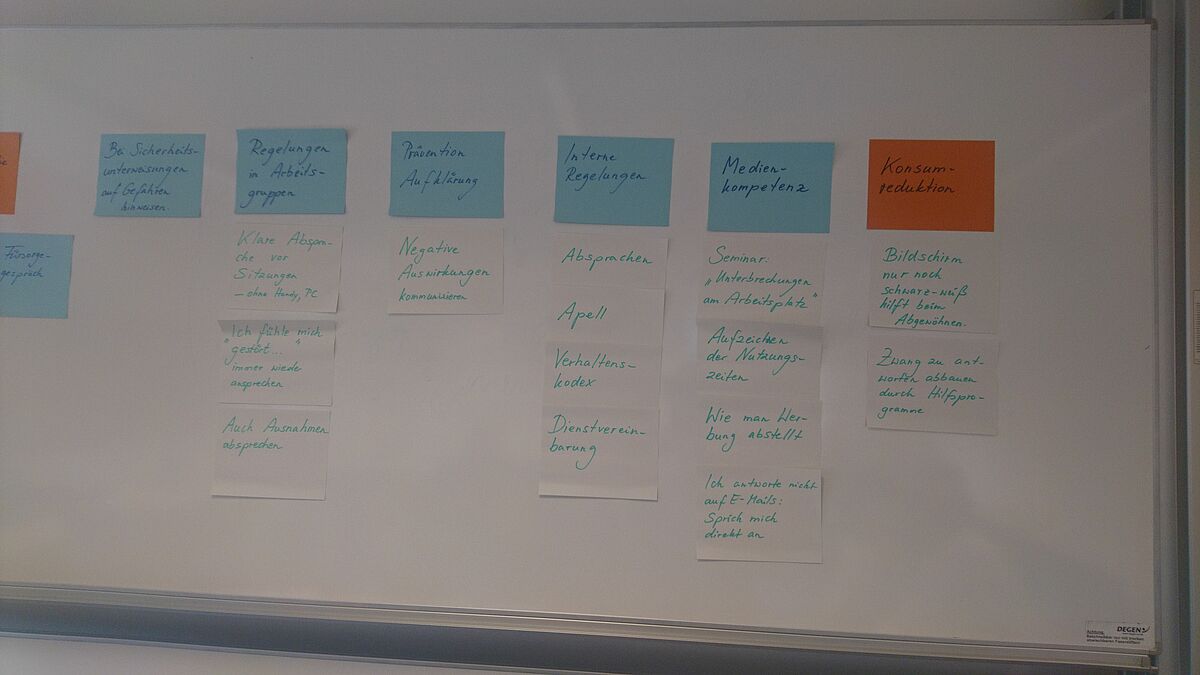 Bei Sicherheits-
unterweisungen
auf Gefahren
hinweisen.
Fürsorge-
gespräch
Regelungen
in Arbeits-
gruppen
Klare Abspra-
che vor
Sitzungen
– ohne Handy, PC
"Ich fühle mich
gestört..."
immer wieder
ansprechen
Auch Ausnahmen
absprechen
Prävention
Aufklärung
Negative
Auswirkungen
kommunizieren
Interne
Regelungen
Absprachen
Apell
Verhaltens-
kodex
Dienstverein-
barung
Medien-
kompetenz
Seminar:
"Unterbrechungen
am Arbeitsplatz"
Aufzeichen
der Nutzungs-
zeiten
Wie man Wer-
bung abstellt
Ich antworte nicht
auf E-Mails:
Sprich mich
direkt an
Konsum-
reduktion
Bildschirm
nur noch
schwarz-weiß
hilft beim
Abgewöhnen.
Zwang zu ant-
worten abbauen
durch Hilfspro-
gramme
DEGEN
Achtung: